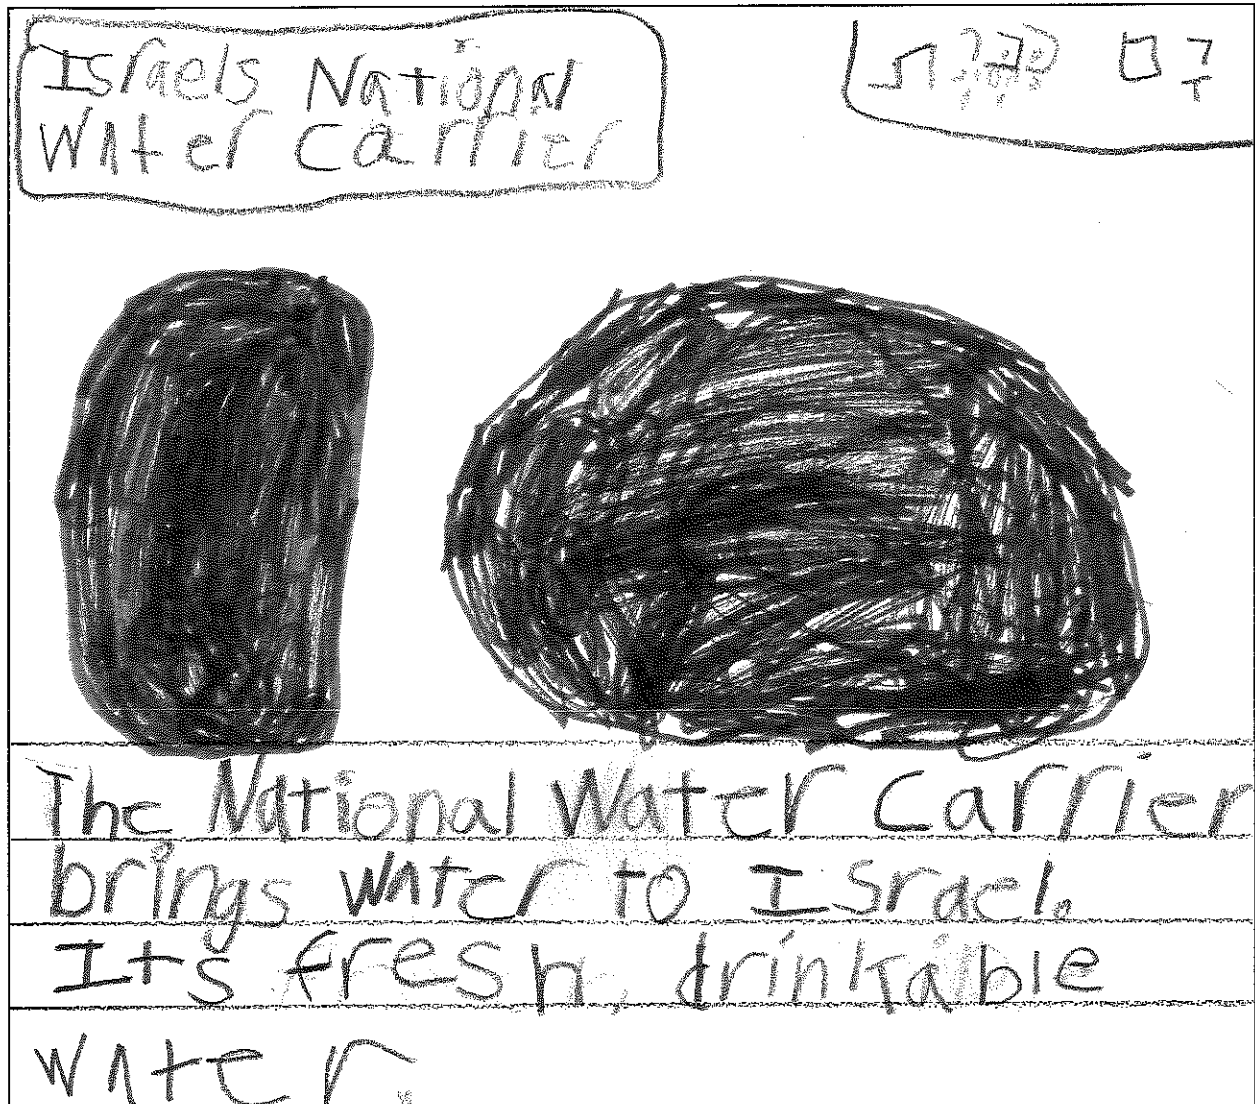 Israels National
Water Carrier
The National Water Carrier
brings water to Israel.
Its fresh, drinkable
water.